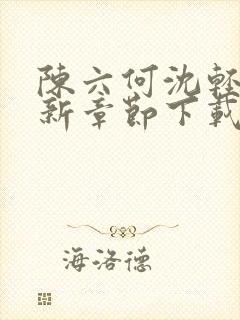 陳六何沈輕
新章節下載
海洛德